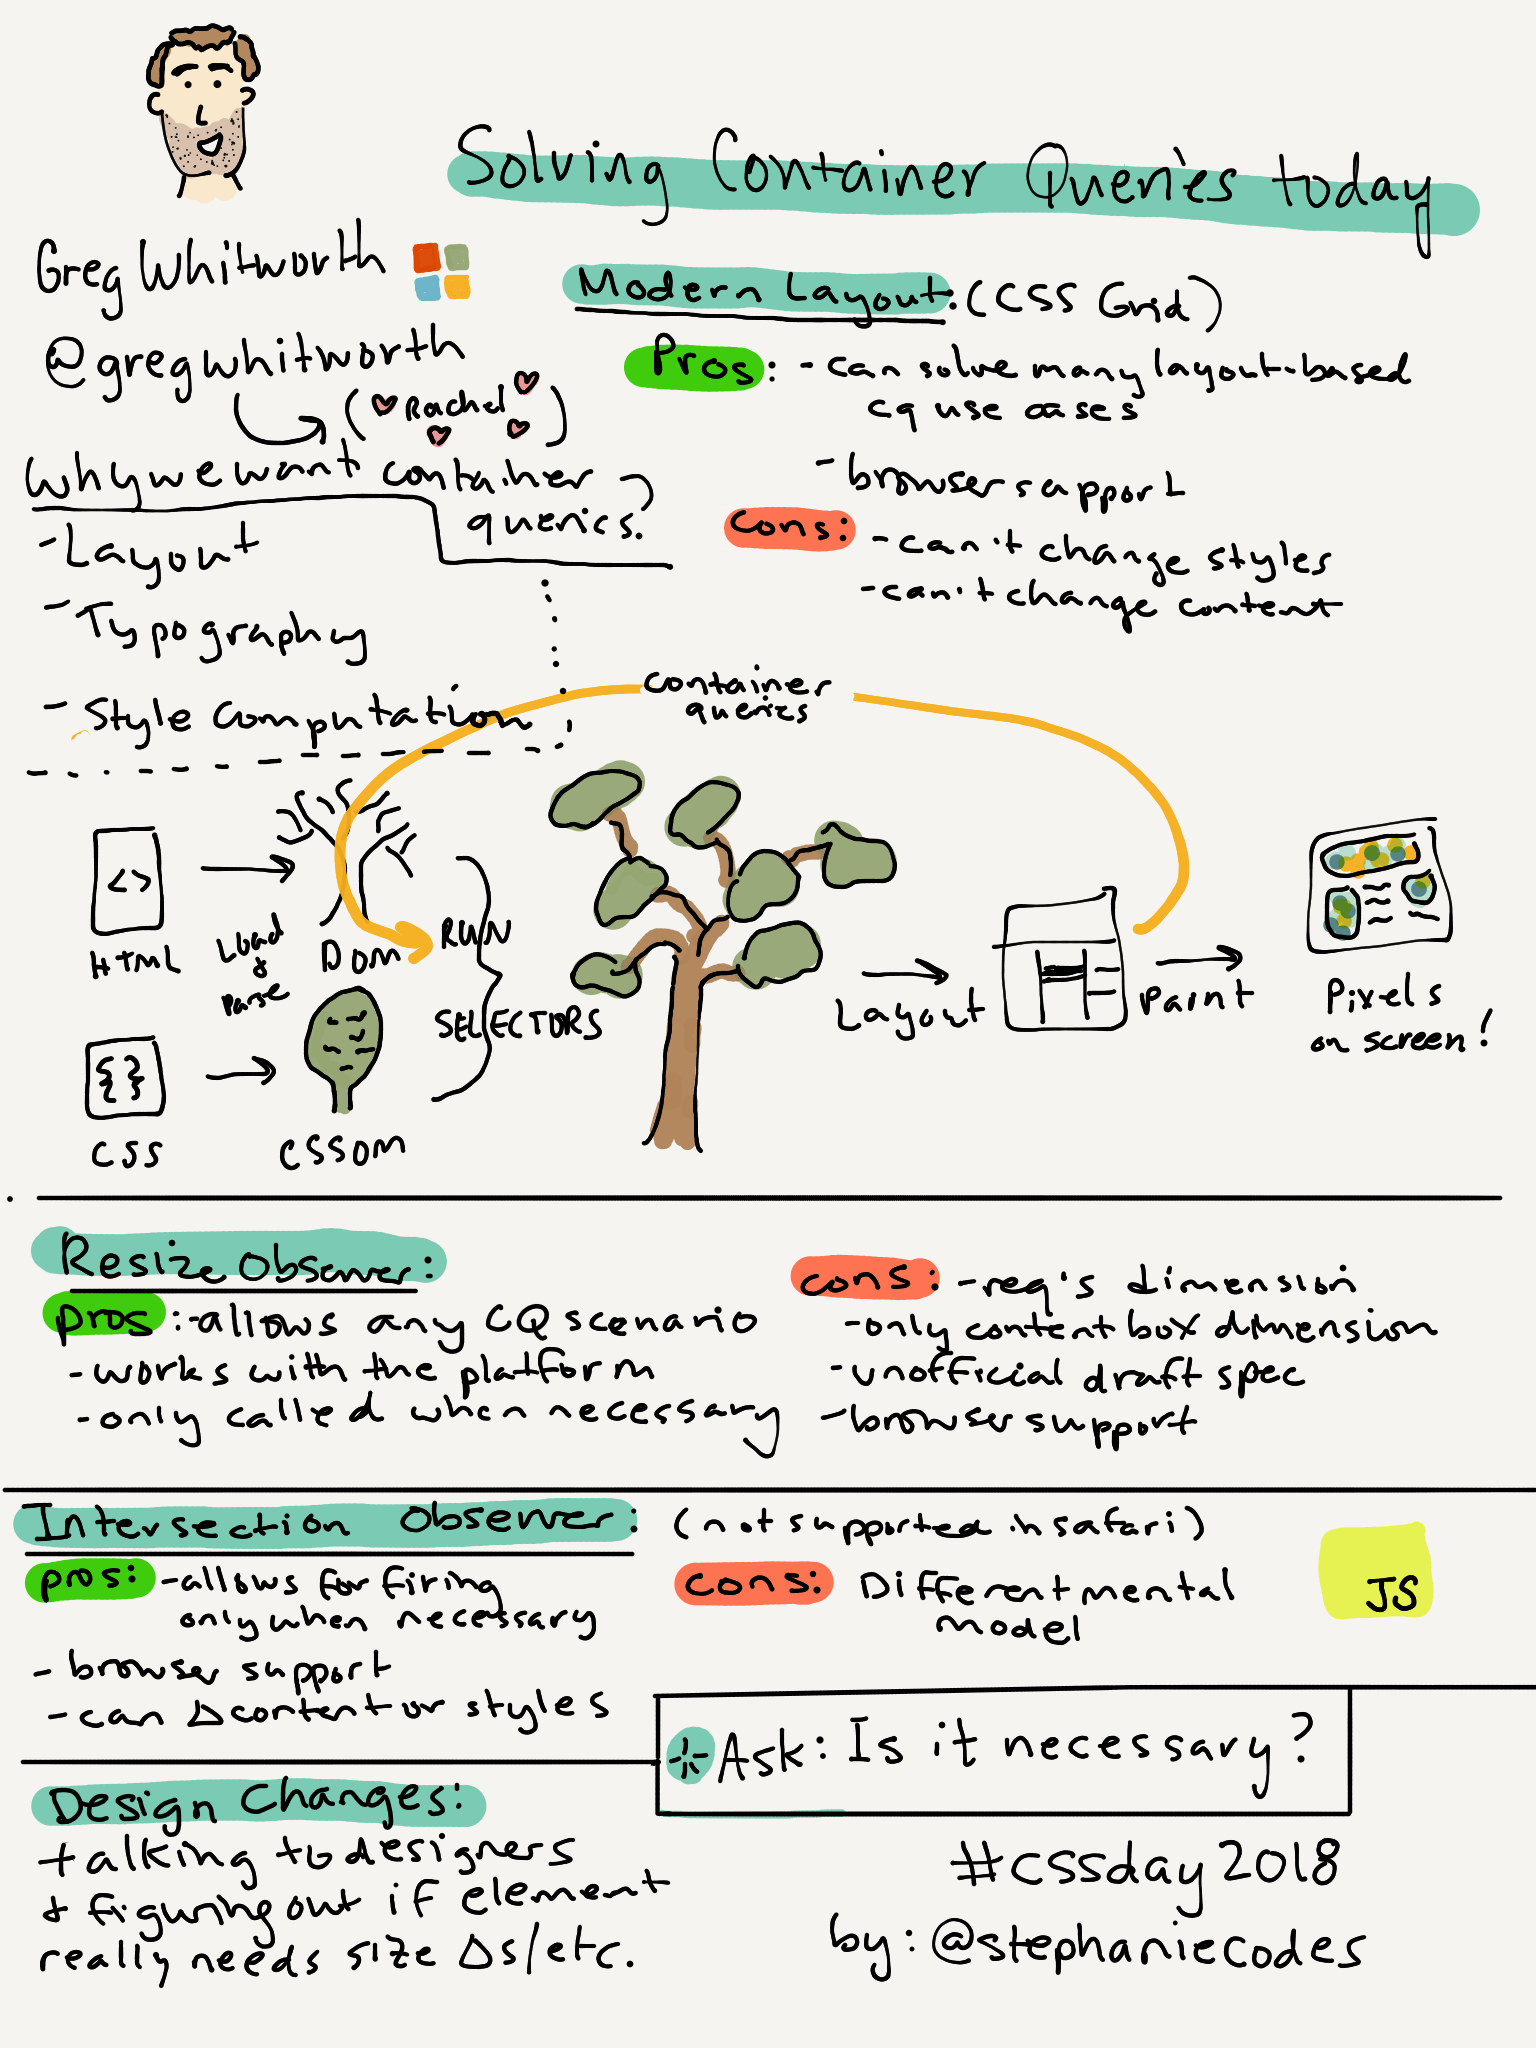 Solving Container Queries today
Greg Whitworth
@gregwhitworth
(Rachel)
Why we want container
queries?
- Layout
- Typography
- Style Computation
Modern Layout: (CSS Grid)
Pros: - can solve many layout-based
cq use cases
- browser support
Cons: - can't change styles
- can't change content
container
queries
<>
HTML
Load
&
Parse
DOM
{}
CSS
CSSOM
RUN
SELECTORS
Layout
Paint
Pixels
on screen!
Resize Observer:
pros: - allows any CQ scenario
- works with the platform
- only called when necessary
cons: - req's dimension
- only content box dimension
- unofficial draft spec
- browser support
Intersection Observer: (not supported in safari)
pros: - allows for firing
only when necessary
- browser support
- can Δ content or styles
cons: Different mental
model
JS
Ask: Is it necessary?
Design Changes:
talking to designers
& figuring out if element
really needs size Δs/etc.
#cssday2018
by: @stephaniecodes